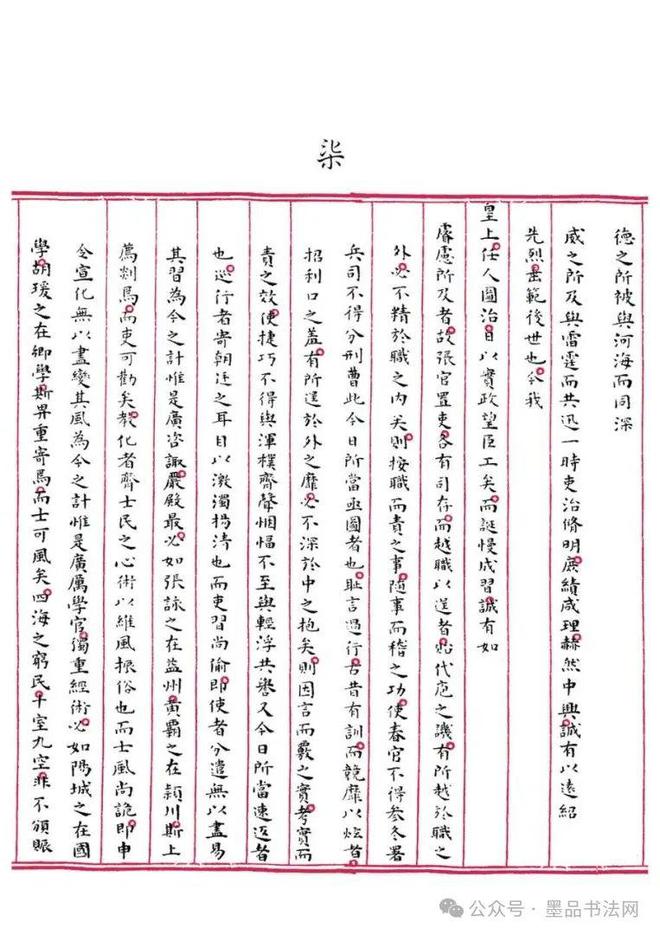 柒
德之所被與河海而同深
威之所及與雷霆而共迅一時吏治脩明庶績咸理赫然中興誠有以遠紹
先烈垂範後世也今我
皇上任人圖治日以實政望臣工矣而誕慢成習誠有如
睿慮所及者故張官置吏各有司存而越職以逞者貽代庖之譏有所越於職之
外必不精於職之内矣則按職而責之事隨事而稽之功使春官不得參冬署
兵司不得分刑曹此今日所當亟圖者也恥言過行古昔有訓而競靡以炫者
招利口之羞有所逞於外之靡必不深於中之抱矣則因言而覈之實考實而
責之效使捷巧不得與渾樸齊聲悃愊不至與輕浮共譽又今日所當速返者
也巡行者寄朝廷之耳目以激濁揚清也而吏習尚偷即使者分遣無以盡易
其習為今之計惟是廣咨諏嚴殿最必如張詠之在益州黃霸之在潁川斯上
薦剡焉而吏可勸矣教化者齊士民之心術以維風振俗也而士風尚詭即申
令宣化無以盡變其風為今之計惟是廣厲學官獨重經術必如陽城之在國
學胡瑗之在鄉學斯畀重寄焉而士可風矣四海之窮民十室九空非不頒賑
公众号 · 墨品书法网